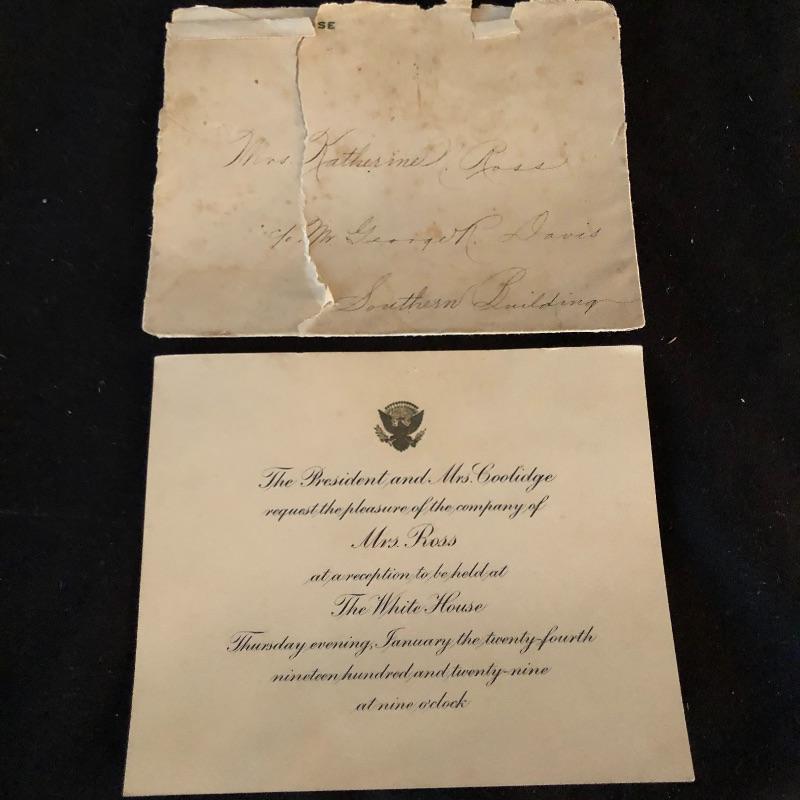 SE
Mrs Katherine Ross
c/o Mr George R. Davis
Southern Building
The President and Mrs. Coolidge
request the pleasure of the company of
Mrs. Ross
at a reception to be held at
The White House
Thursday evening, January the twenty-fourth
nineteen hundred and twenty-nine
at nine o'clock